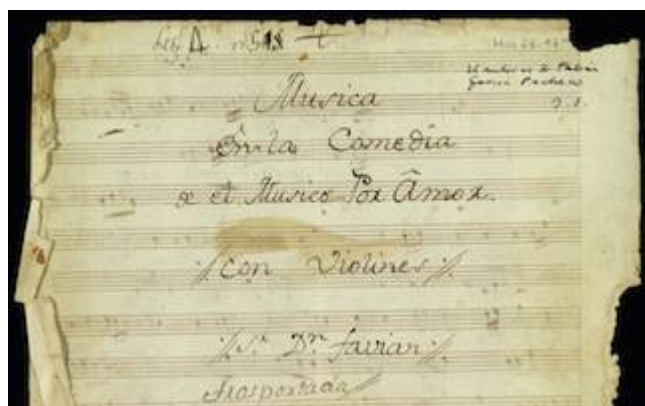 Leg A. nº
Mus
el autor es
Garcia Pacheco
Musica
En la Comedia
de el Musico Por Âmor.
Con Violines
Sr. Dn. favian
Trasportada